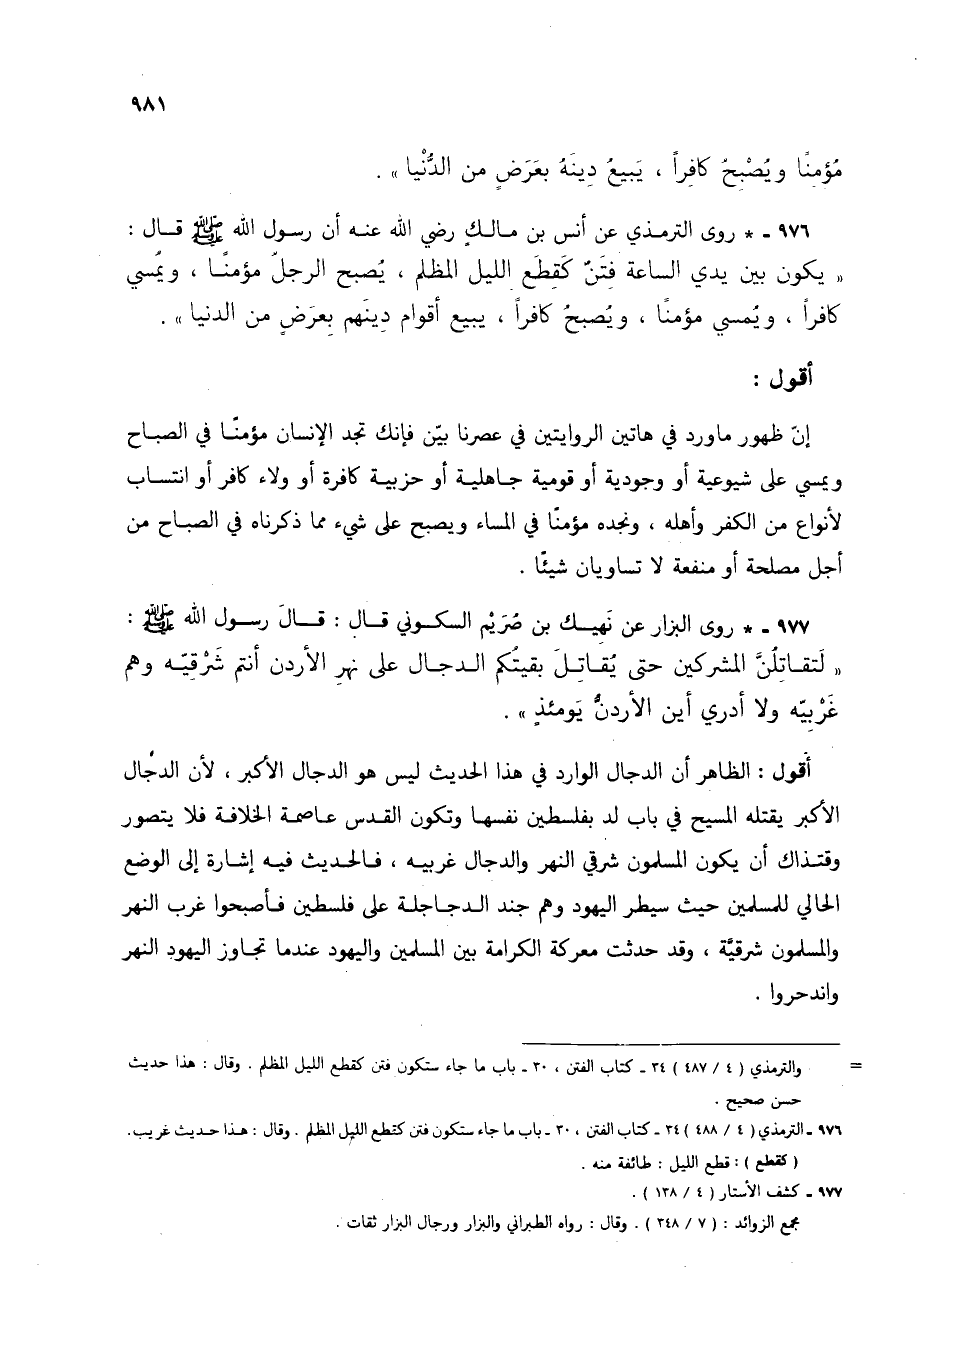 ٩٨١
مُؤمنًا ويُصْبحُ كافراً ، يَبيعُ دِينَهُ بعَرَضٍ من الدُّنْيا » .
٩٧٦ ـ * روى الترمـذي عن أنس بن مـالـكٍ رضي الله عنـه أن رسـول الله ﷺ قـال :
« يكون بين يدي الساعة فِتَنٌ كَقِطَعِ الليل المظلم ، يُصبح الرجلُ مؤمنًـا ، ويُمْسي
كافراً ، ويُمسي مؤمنًا ، ويُصبحُ كافراً ، يبيع أقوام دِينَهم بِعرَضٍ من الدنيا » .
أقول :
إنّ ظهور ماورد في هاتين الروايتين في عصرنا بيّن فإنك تجد الإنسان مؤمنًا في الصباح
ويمسي على شيوعية أو وجودية أو قومية جـاهليـة أو حزبيـة كافرة أو ولاء كافر أو انتسـاب
لأنواع من الكفر وأهله ، ونجده مؤمنًا في المساء ويصبح على شيء مما ذكرناه في الصباح من
أجل مصلحة أو منفعة لا تساويان شيئًا .
٩٧٧ ـ * روى البزار عن نَهيـك بن صُرَيْم السكـوني قـال : قـالَ رسـول الله ﷺ :
« لَتقـاتلُنَّ المشركين حتى يُقـاتـلَ بقيتُكم الـدجـال على نهرِ الأردن أنتم شَرْقِيّـه وهم
غَرْبيّه ولا أدري أين الأردنُّ يَومئذٍ » .
أقول : الظاهر أن الدجال الوارد في هذا الحديث ليس هو الدجال الأكبر ، لأن الدجّال
الأكبر يقتله المسيح في باب لد بفلسطين نفسهـا وتكون القـدس عـاصمـة الخلافـة فلا يتصور
وقتـذاك أن يكون المسلمون شرقي النهر والدجال غربيـه ، فـالحـديث فيـه إشـارة إلى الوضع
الحالي للمسلمين حيث سيطر اليهود وهم جند الـدجـاجلـة على فلسطين فـأصبحوا غرب النهر
والمسلمون شرقيَّه ، وقد حدثت معركة الكرامة بين المسلمين واليهود عندما تجاوز اليهود النهر
واندحروا .
= والترمذي ( ٤ / ٤٨٧ ) ٣٤ ـ كتاب الفتن ، ٣٠ ـ باب ما جاء ستكون فتن كقطع الليل المظلم . وقال : هذا حديث
حسن صحيح .
٩٧٦ ـ الترمذي ( ٤ / ٤٨٨ ) ٣٤ ـ كتاب الفتن ، ٣٠ ـ باب ما جاء ستكون فتن كقطع الليل المظلم . وقال : هـذا حـديث غريب .
( كقطع ) : قطع الليل : طائفة منه .
٩٧٧ ـ كشف الأستار ( ٤ / ١٣٨ ) .
مجمع الزوائد : ( ٧ / ٣٤٨ ) . وقال : رواه الطبراني والبزار ورجال البزار ثقات .